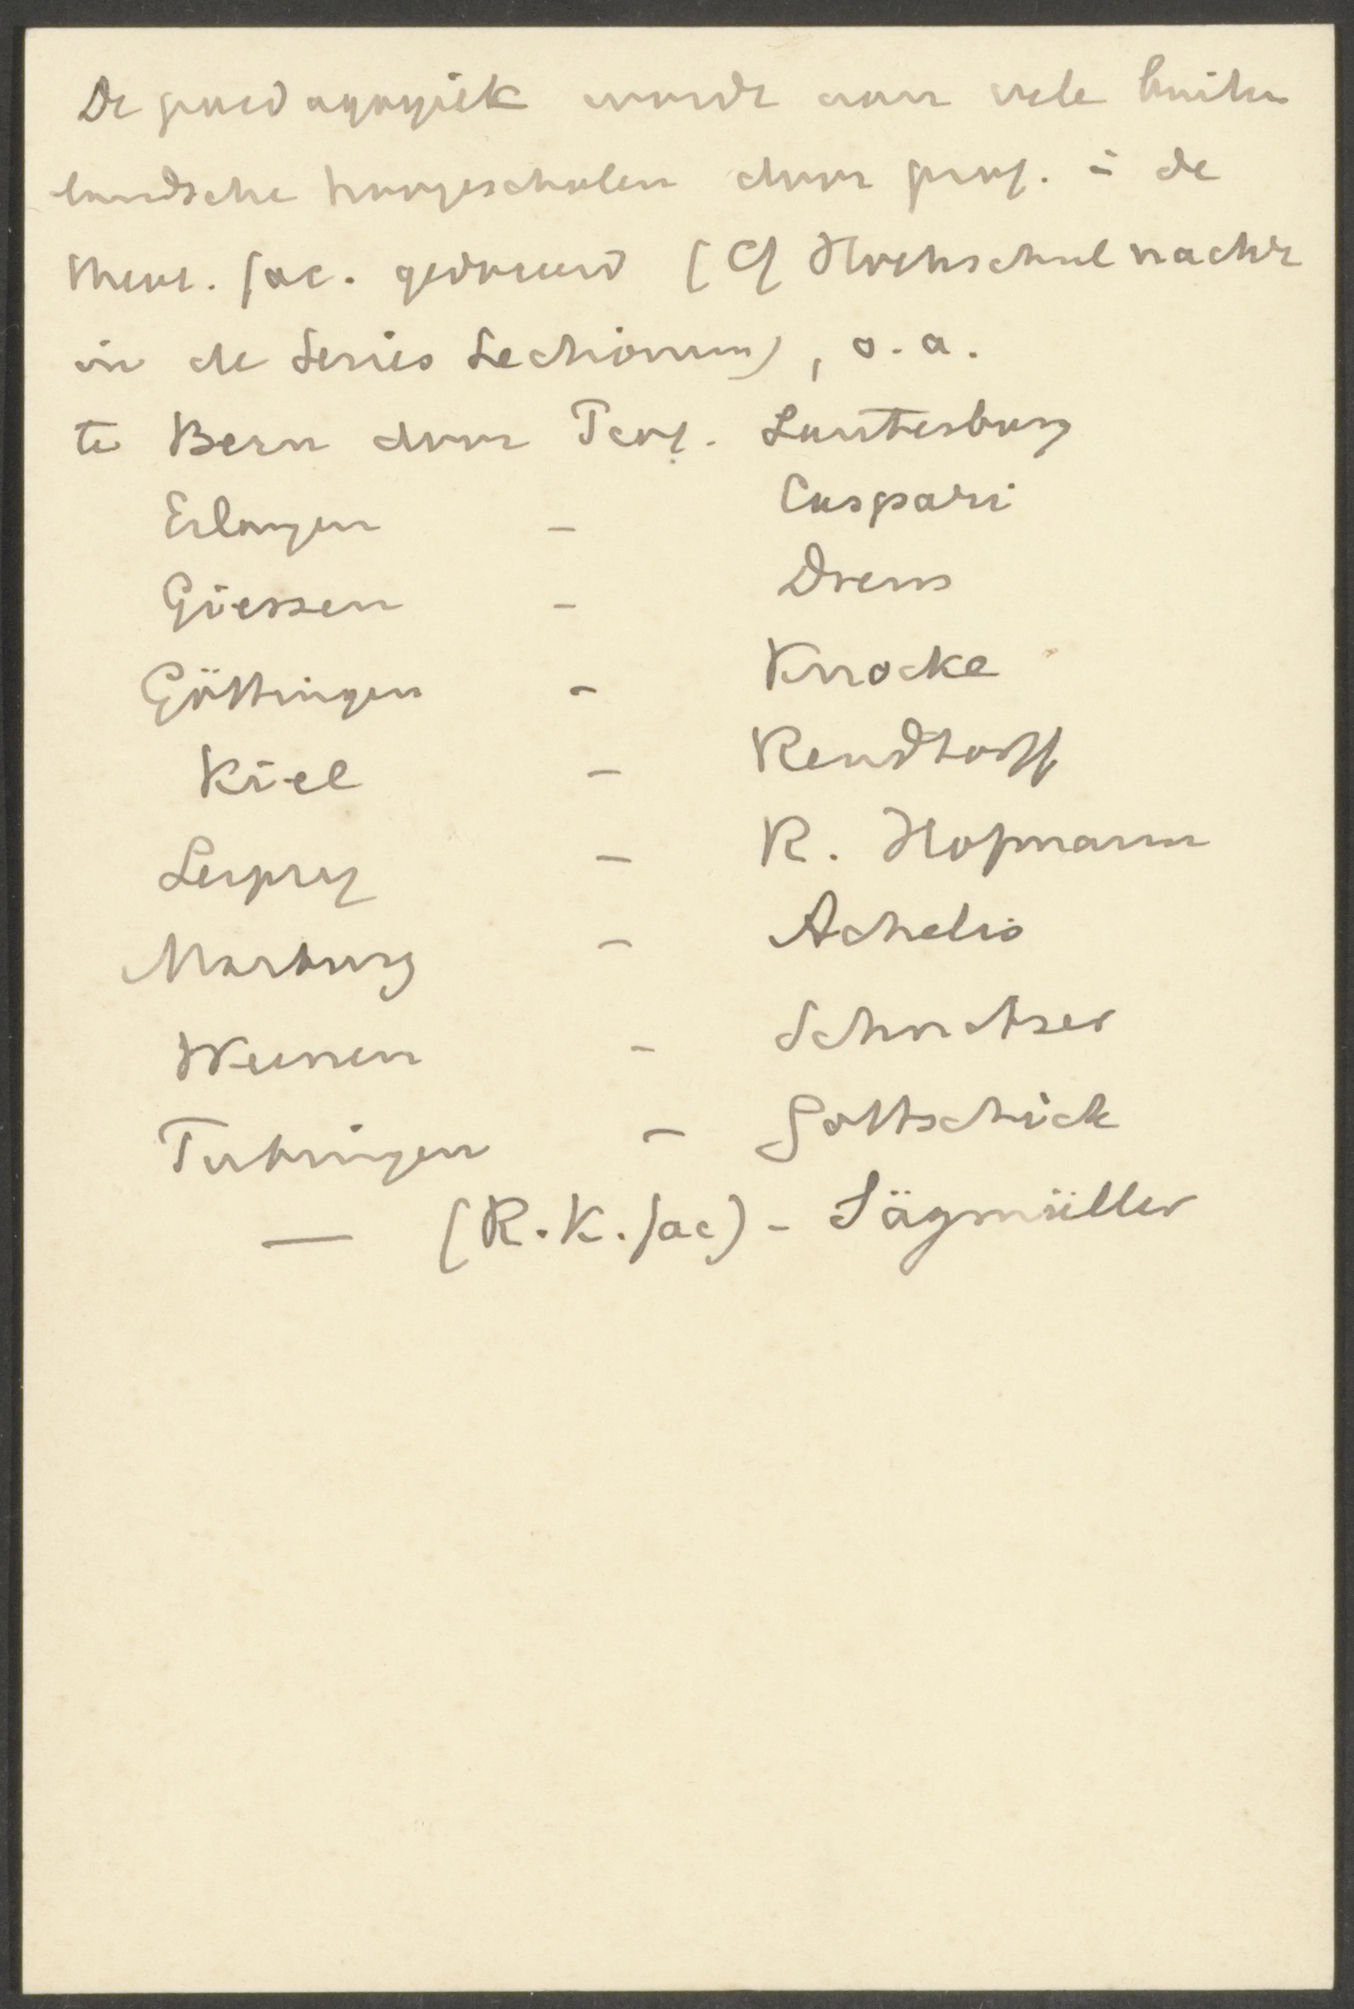 De paedagogiek wordt aan vele buiten
landsche hoogescholen door prof. in de
theol. fac. gedoceerd (Cf Hochschulnachr
in de Series Lectionum), o.a.
te Bern door Prof. Lauterburg
Erlangen - Caspari
Giessen - Drews
Göttingen - Knocke
Kiel - Rendtorff
Leipzig - R. Hofmann
Marburg - Achelis
Weenen -
Tubingen - Gottschick
— (R.K. fac) - Sägmüller